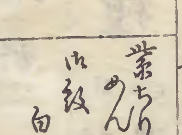 紫ちり
めん
御紋
白